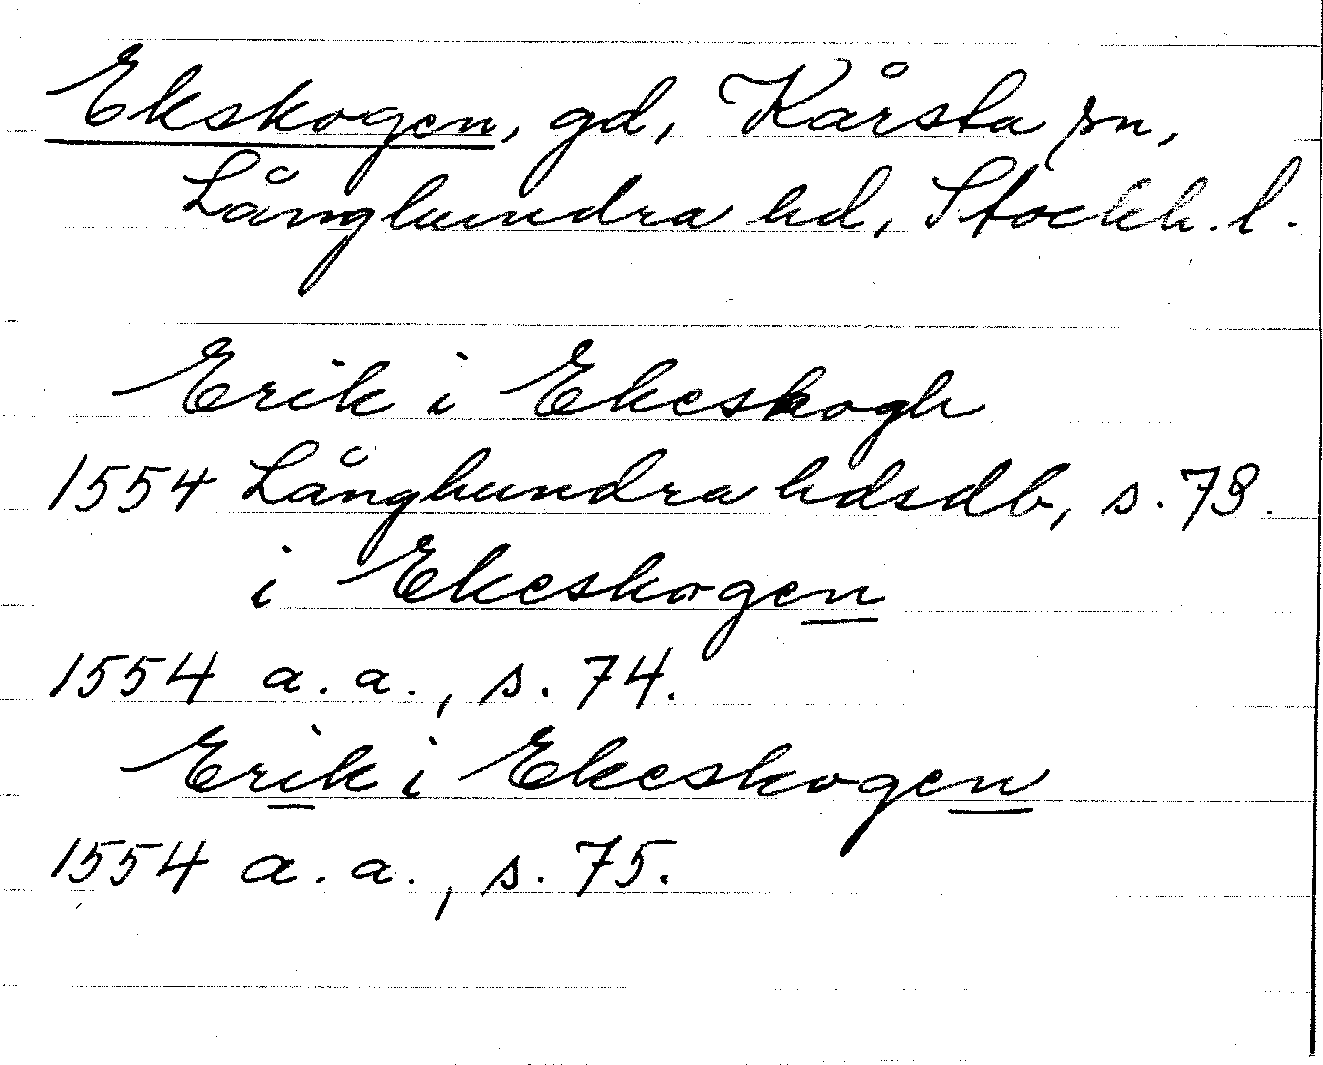 Ekskogen, gd, Kårsta sn,
Långhundra hd, Stockh. l.
Erik i Ekeskogh
1554 Långhundra hdsdb, s. 73.
i Ekeskogen
1554 a. a., s. 74.
Erik i Ekeskogen
1554 a. a., s. 75.